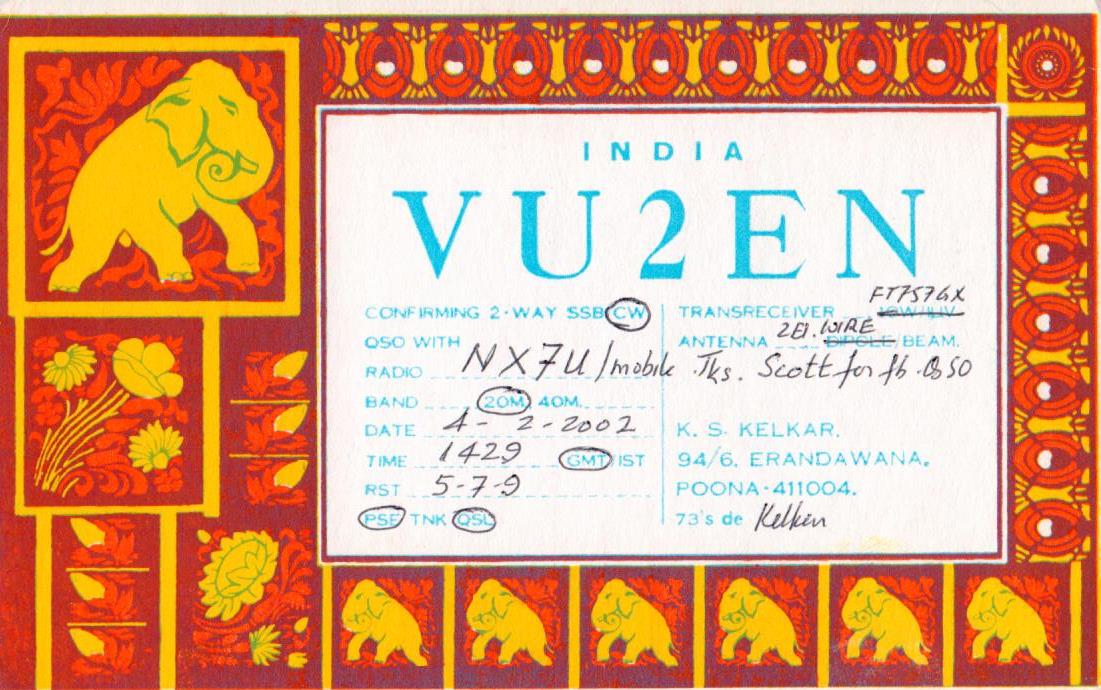 INDIA
VU2EN
CONFIRMING 2-WAY SSB CW
QSO WITH
RADIO NX7U/mobile
BAND 20M, 40M.
DATE 4-2-2002
TIME 1429 GMT IST
RST 5-7-9
PSE TNK QSL
FT757GX
TRANSRECEIVER
2El. WIRE
ANTENNA DIPOLE/BEAM.
Tks. Scott for fb. QSO
K. S. KELKAR.
94/6, ERANDAWANA.
POONA-411004.
73's de Kelkar